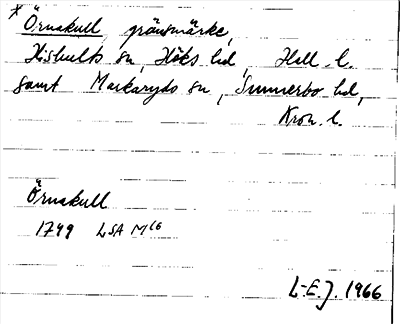 × Örnakull gränsmärke,
Hishults sn, Höks hd, Hall. l.
samt Markaryds sn, Sunnerbo hd,
Kron. l.
Örnakull
1749 LSA M16
L-E.J. 1966